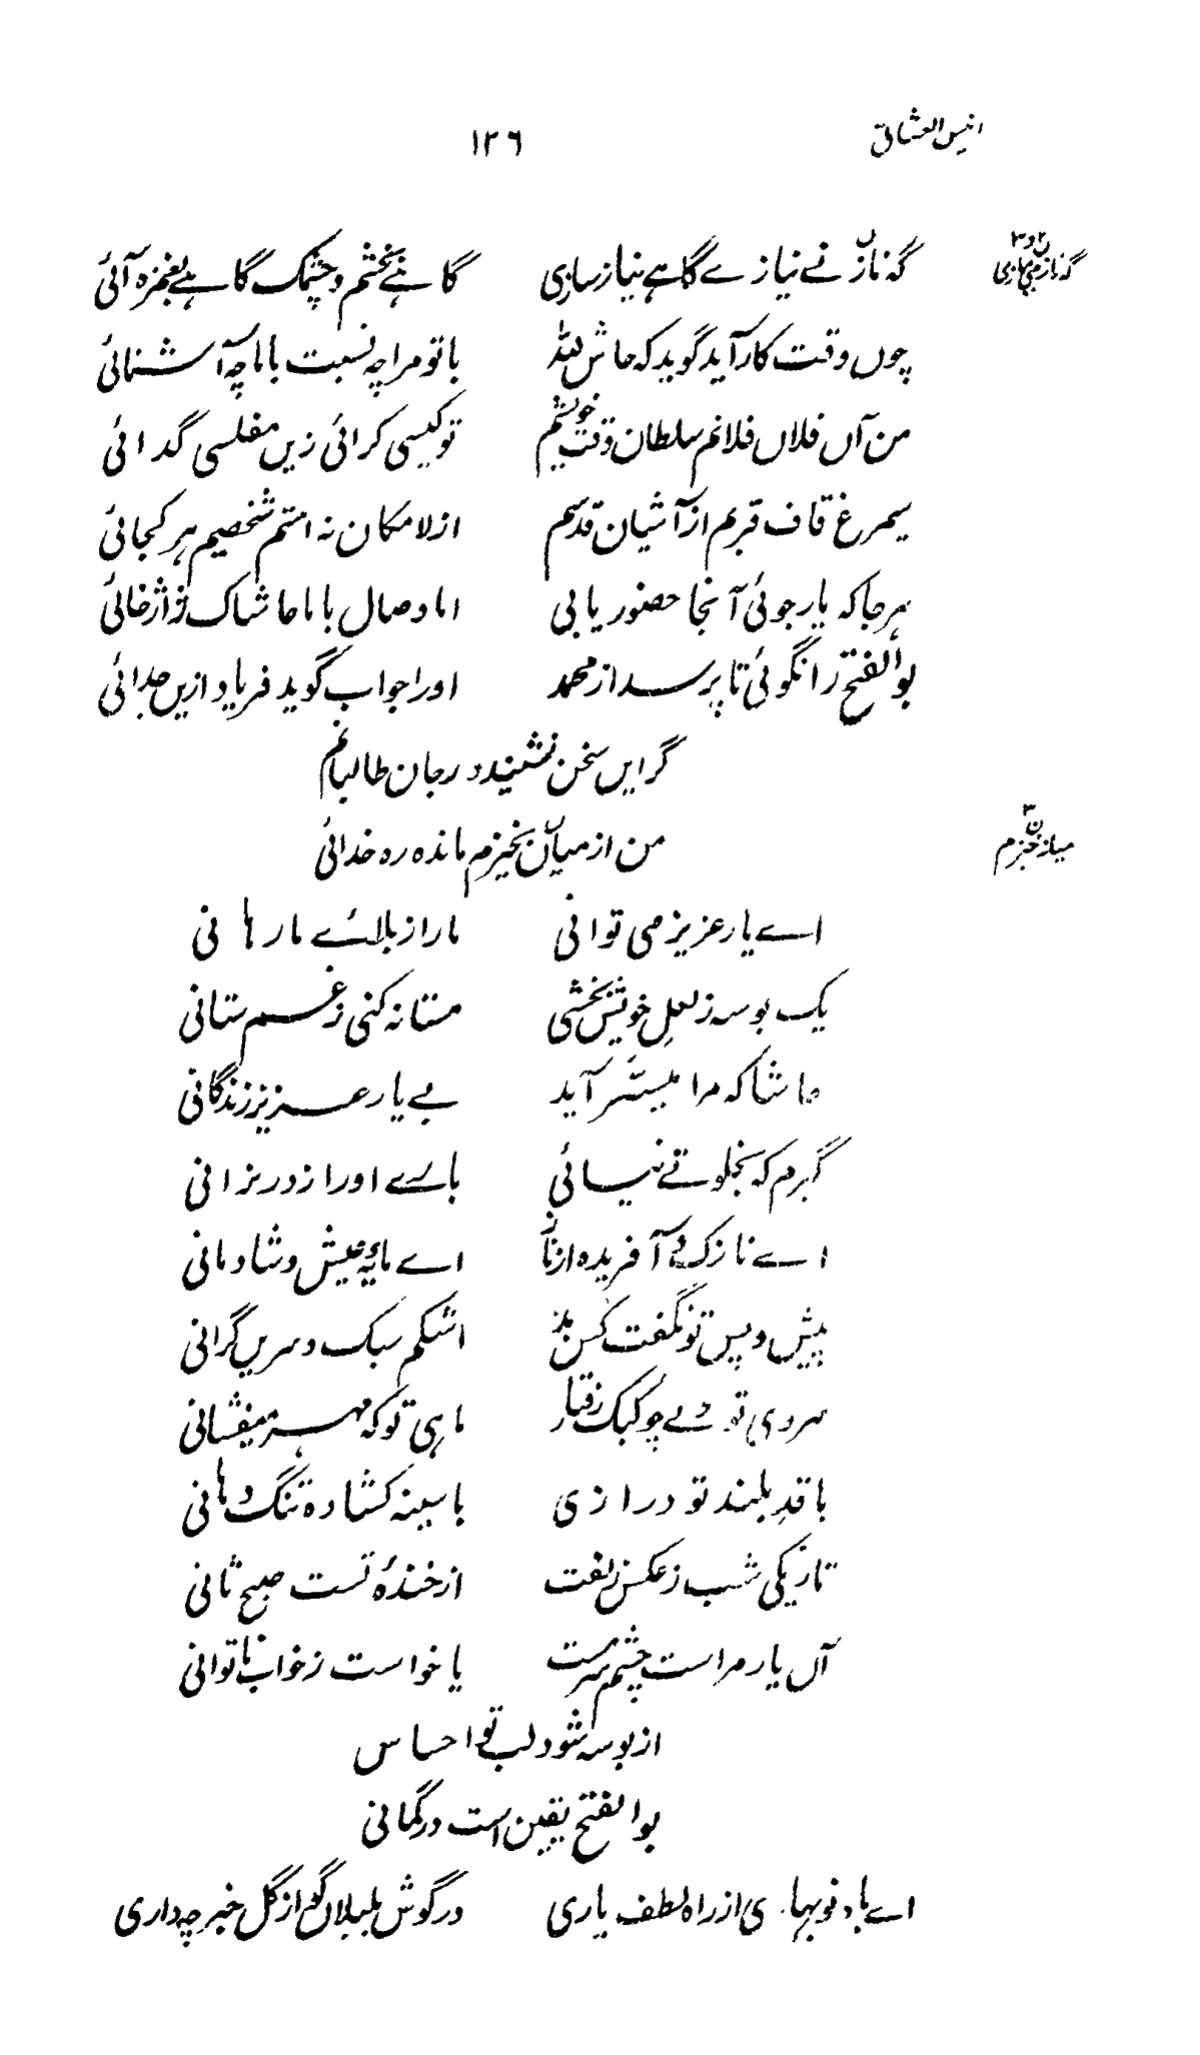 انیس العشاق
۱۲۶
گہ ناز نے نیازے گاہے نیاز سازی گاہے بخشم و چشمک گاہے بغمزہ آئی
چوں وقت کار آید گوید کہ حاش للہ با تو مرا چہ نسبت با ما چہ آشنائی
من آں فلاں فلانم سلطان وقت خویشم تو کیسی کرائی زیں مفلسی گدائی
سیمرغ قاف قربم از آشیان قدسم از لامکان نہ استم شخصیم ہر کجائی
ہر جا کہ یار جوئی آنجا حضور یابی اما وصال با ما حاشاک ژاژخائی
بوالفتح را نگوئی تا پرسد از محمد او را جواب گوید فریاد ازیں جدائی
گر ایں سخن نشیند در جان طالبانم
من از میاں بخیزم ماندہ رہ خدائی
میاز خیزم
اے یار عزیز می توانی ما را ز بلائے ما رہانی
یک بوسہ ز لعلِ خویش بخشی مستانہ کنی ز غم ستانی
حاشا کہ مرا میسّر آید بے یار عزیز زندگانی
گیرم کہ بخلوتے نیائی بارے او را ز در نرانی
اے نازک آفریدہ از ناز اے مایۂ عیش و شادمانی
پیش و پس تو نگفت کس بد اشکم سبک و سریں گرانی
سروی تو ولے چو کبک رفتار ماہی تو کہ مہر میفشانی
با قدِ بلند تو درازی با سینہ کشادہ تنگ دہانی
تاریکی شب ز عکس زلفت از خندۂ تست صبح ثانی
آں یار مراست چشم سرمست یا خواست ز خواب ناتوانی
از بوسہ شود لب تو احساس
بوالفتح یقین است در گمانی
اے باد نوبہاری از راہ لطف یاری در گوش بلبلاں گو از گل خبر چہ داری